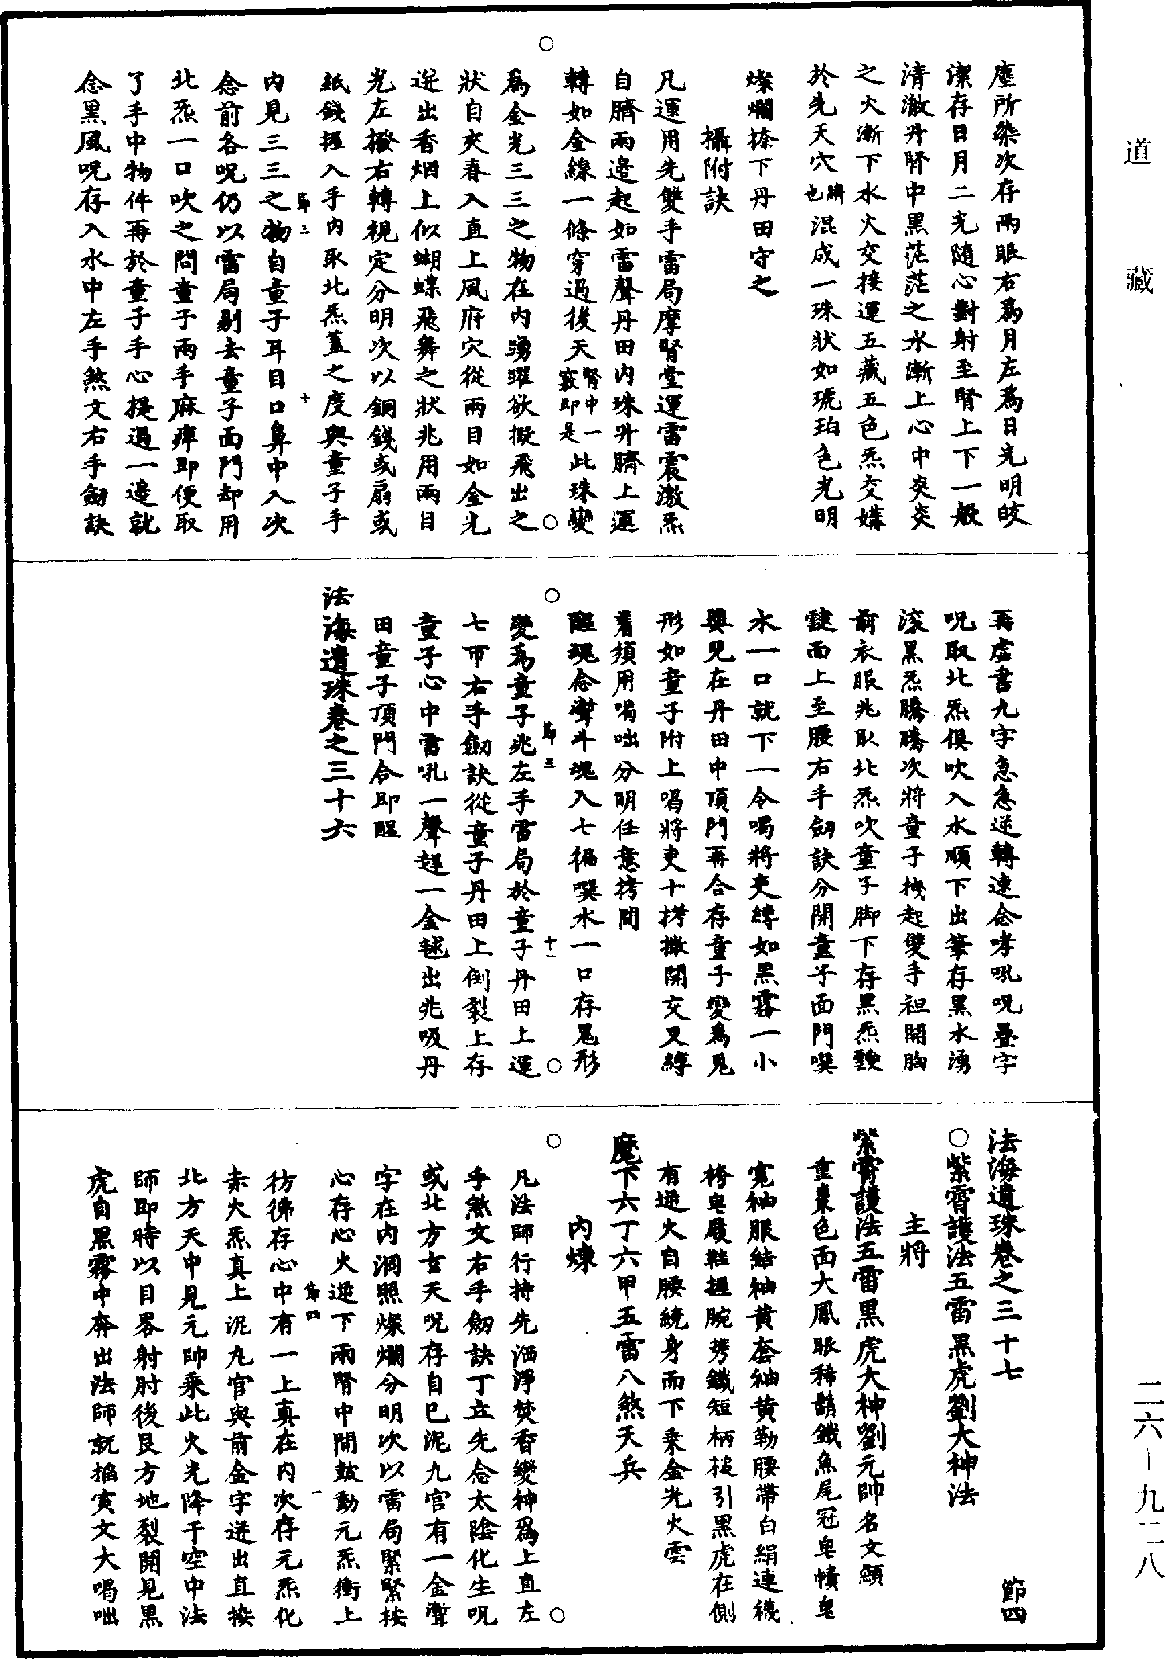 道藏
塵所染次存兩眼右爲月左爲日光明皎
潔存日月二光隨心對射至腎上下一般
清澈丹腎中黑茫茫之水漸上心中炎炎
之火漸下水火交接運五藏五色炁交媾
於先天穴臍也混成一珠狀如琥珀色光明
燦爛捺下丹田守之
攝附訣
凡運用先雙手雷局摩腎堂運雷震激炁
自臍兩邊起如雷聲丹田內珠升臍上運
轉如金線一條穿過後天腎中一竅即是此珠變
爲金光三三之物在內踴躍欲擬飛出之
狀自夾脊入直上風府穴從兩目如金光
迸出香烟上似蝴蝶飛舞之狀兆用兩目
光左撥右轉視定分明次以銅錢或扇或
紙錢握入手內取北炁蓋之度與童子手
節三 十
內見三三之物自童子耳目口鼻中入次
念前各呪仍以雷局剔去童子面門却用
北炁一口吹之問童子兩手麻痺即便取
了手中物件再於童子手心提過一邊就
念黑風呪存入水中左手煞文右手劒訣
再虛書九字急急逆轉速念哮吼呪疊字
呪取北炁俱吹入水順下出筆存黑水湧
滚黑炁騰騰次將童子拽起雙手袒開胸
前衣服兆取北炁吹童子脚下存黑炁靉
靆面上至腰右手劒訣分開童子面門噀
水一口就下一令喝將吏縛如黑霧一小
嬰兒在丹田中頂門再合存童子變爲鬼
形如童子附上喝將吏十拷撒開交叉縛
着頻用喝咄分明任意拷問
醒魂念瀞斗魂入七徧噀水一口存鬼形
節三 十一
變爲童子兆左手雷局於童子丹田上運
七帀右手劒訣從童子丹田上倒裂上存
童子心中雷吼一聲趕一金毬出兆吸丹
田童子頂門合即醒
法海遺珠卷之三十六
法海遺珠卷之三十七 節四
紫霄護法五雷黑虎劉大神法
主將
紫霄護法五雷黑虎大神劉元帥名文顯
重棗色面大鳳眼稀鬚鐵魚尾冠皂幘皂
寬袖服結袖黃套袖黃勒腰帶白絹連襪
袴皂履鞋握腕䝿鐵短柄椎引黑虎在側
有逆火自腰繞身而下乘金光火雲
麾下六丁六甲五雷八煞天兵
內煉
凡法師行持先洒淨焚香變神爲上直左
手煞文右手劒訣丁立先念太陰化生呪
或北方玄天呪存自己泥九宮有一金瀞
字在內洞照燦爛分明次以雷局緊緊按
心存心火逆下兩腎中間鼓動元炁衝上
節四 一
彷彿存心中有一上真在內次存元炁化
赤火炁真上泥九宮與前金字迸出直接
北方天中見元帥乘此火光降于空中法
師即時以目畧射肘後艮方地裂開見黑
虎自黑霧中奔出法師就掐寅文大喝咄
二六－九二八